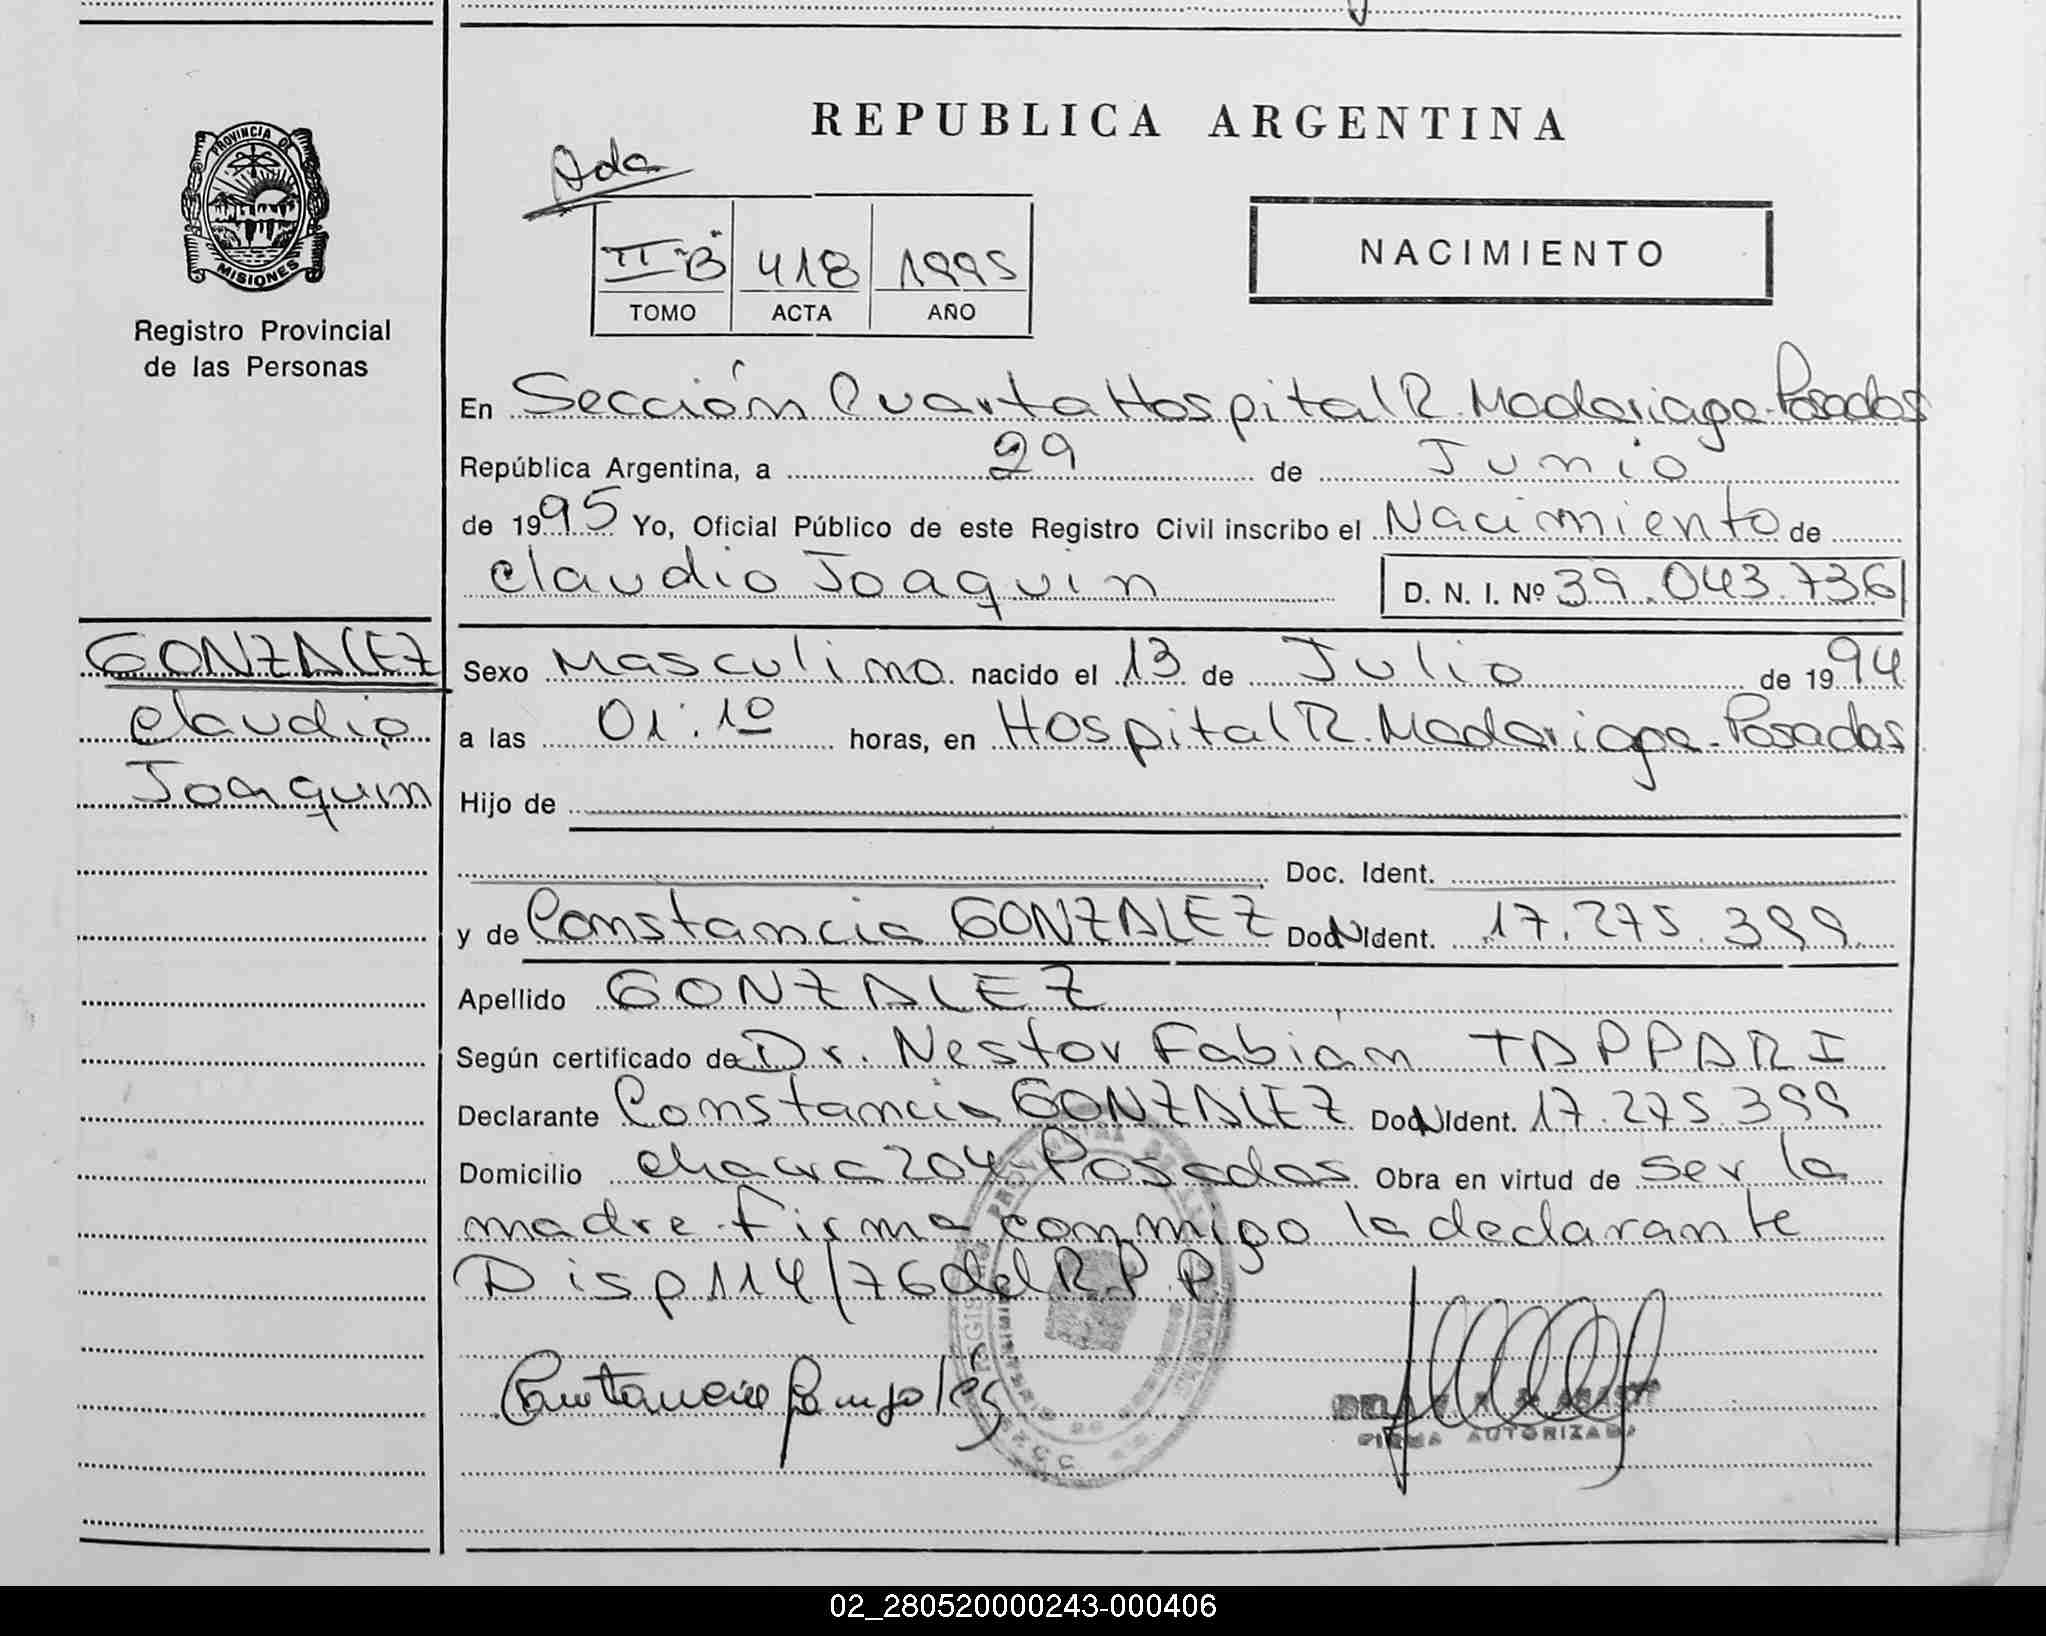 REPUBLICA ARGENTINA
PROVINCIA DE
MISIONES
Registro Provincial
de las Personas
Ada
II "B" 418 1995
TOMO ACTA AÑO
NACIMIENTO
En Sección Cuarta Hospital R. Madariaga-Posadas
República Argentina, a 29 de Junio
de 1995 Yo, Oficial Público de este Registro Civil inscribo el Nacimiento de
Claudio Joaquin D. N. I. Nº 39.043.736
GONZALEZ
Claudio
Joaquin
Sexo Masculino nacido el 13 de Julio de 1994
a las 01:10 horas, en Hospital R. Madariaga-Posadas
Hijo de
Doc. Ident.
y de Constancia GONZALEZ DocNIdent. 17.275.399
Apellido GONZALEZ
Según certificado de Dr. Nestor Fabian TAPPARI
Declarante Constancia GONZALEZ DocNIdent. 17.275.399
Domicilio Chacra 204-Posadas Obra en virtud de ser la
madre-firma conmigo la declarante
Disp 114/76 del R.P.P.
Constancia Gonzalez
FIRMA AUTORIZADA
02_280520000243-000406